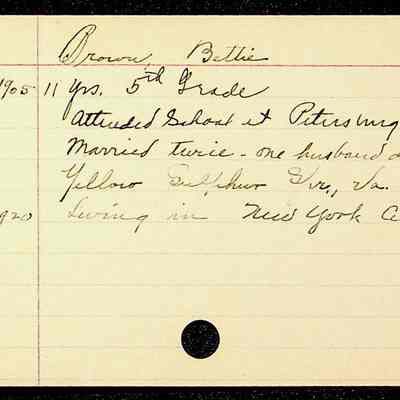 Brown, Bettie
1905 11 yrs. 5th Grade
Attended School at Petersburg
Married twice - one husband
Yellow Sulphur Spr., Va.
1920 Living in New York